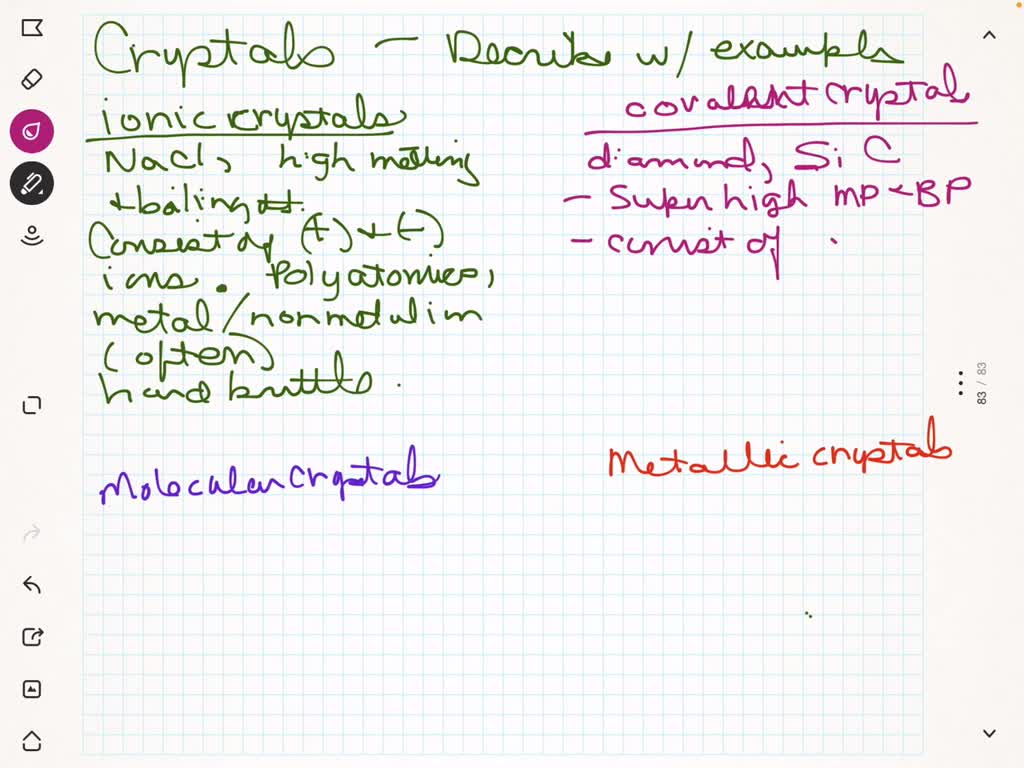 Crystals – Describe w/ examples
ionic crystals
NaCl, high melting
+ boiling pt.
Consist of (+) + (-)
ions. Polyatomics,
metal/nonmetal
(often)
hard brittle.
covalent crystal
diamond, SiC
- Super high MP + BP
- consist of
Molecular crystals
Metallic crystals
83 / 83